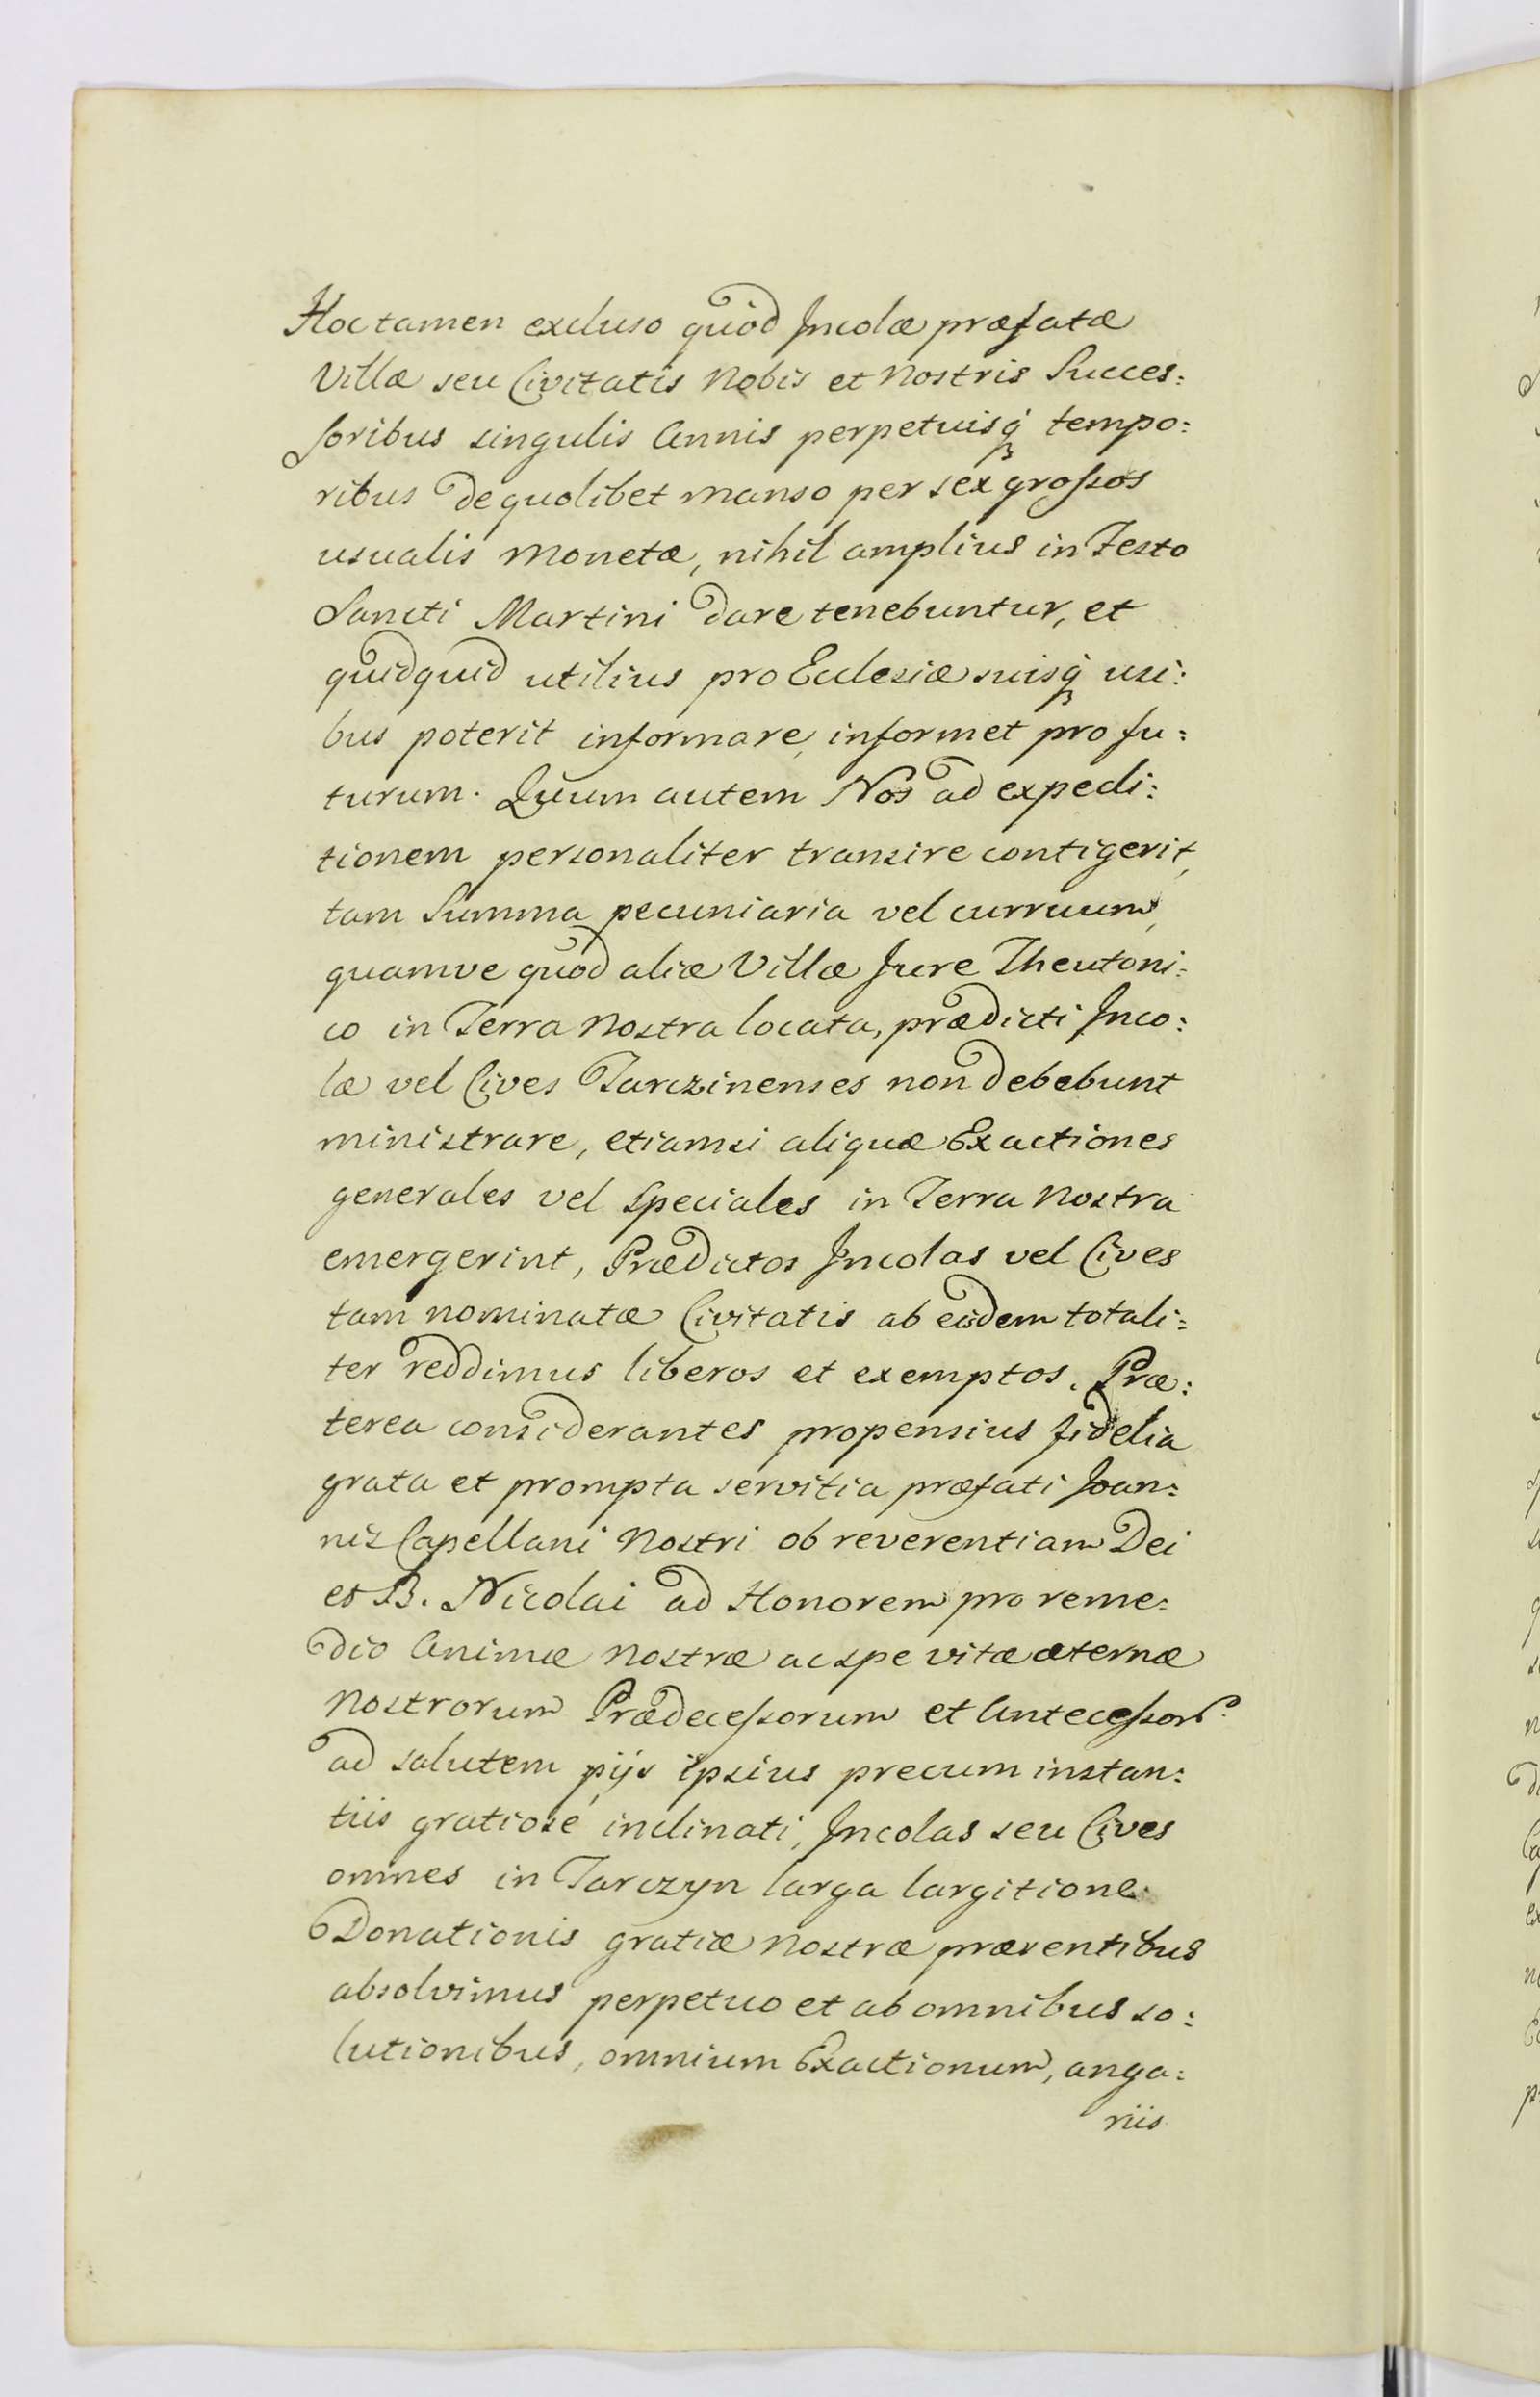 Hoc tamen excluso quod Incolæ præfatæ
Villæ seu Civitatis Nobis et Nostris Succes:
soribus singulis Annis perpetuisq́ tempo:
ribus de quolibet manso per sex grossos
usualis Monetæ, nihil amplius in Festo
Sancti Martini dare tenebuntur, et
quidquid utilius pro Ecclesiæ suisq́ usi:
bus poterit informare, informet pro fu:
turum. Quum autem Nos ad expedi:
tionem personaliter transire contigerit,
tam Summa pecuniaria vel curruum,
quamve quod aliæ Villæ Jure Theutoni:
co in Terra Nostra locata, prædicti Inco:
læ vel Cives Tarczinenses non debebunt
ministrare, etiamsi aliquæ Exactiones
generales vel speciales in Terra Nostra
emergerint, Prædictos Incolas vel Cives
tam nominatæ Civitatis ab eisdem totali:
ter reddimus liberos et exemptos. Præ:
terea considerantes propensius fidelia
grata et prompta servitia præfati Joan:
nis Capellani Nostri ob reverentiam Dei
et B. Nicolai ad Honorem pro reme:
dio Animæ Nostræ ac spe vitæ æternæ
Nostrorum Prædecessorum et Antecessor̃
ad salutem pijs ipsius precum instan:
tiis gratiosé inclinati, Incolas seu Cives
omnes in Tarczyn larga largitione
Donationis gratiæ Nostræ præsentibus
absolvimus perpetuo et ab omnibus so:
lutionibus, omnium Exactionum, anga:
riis